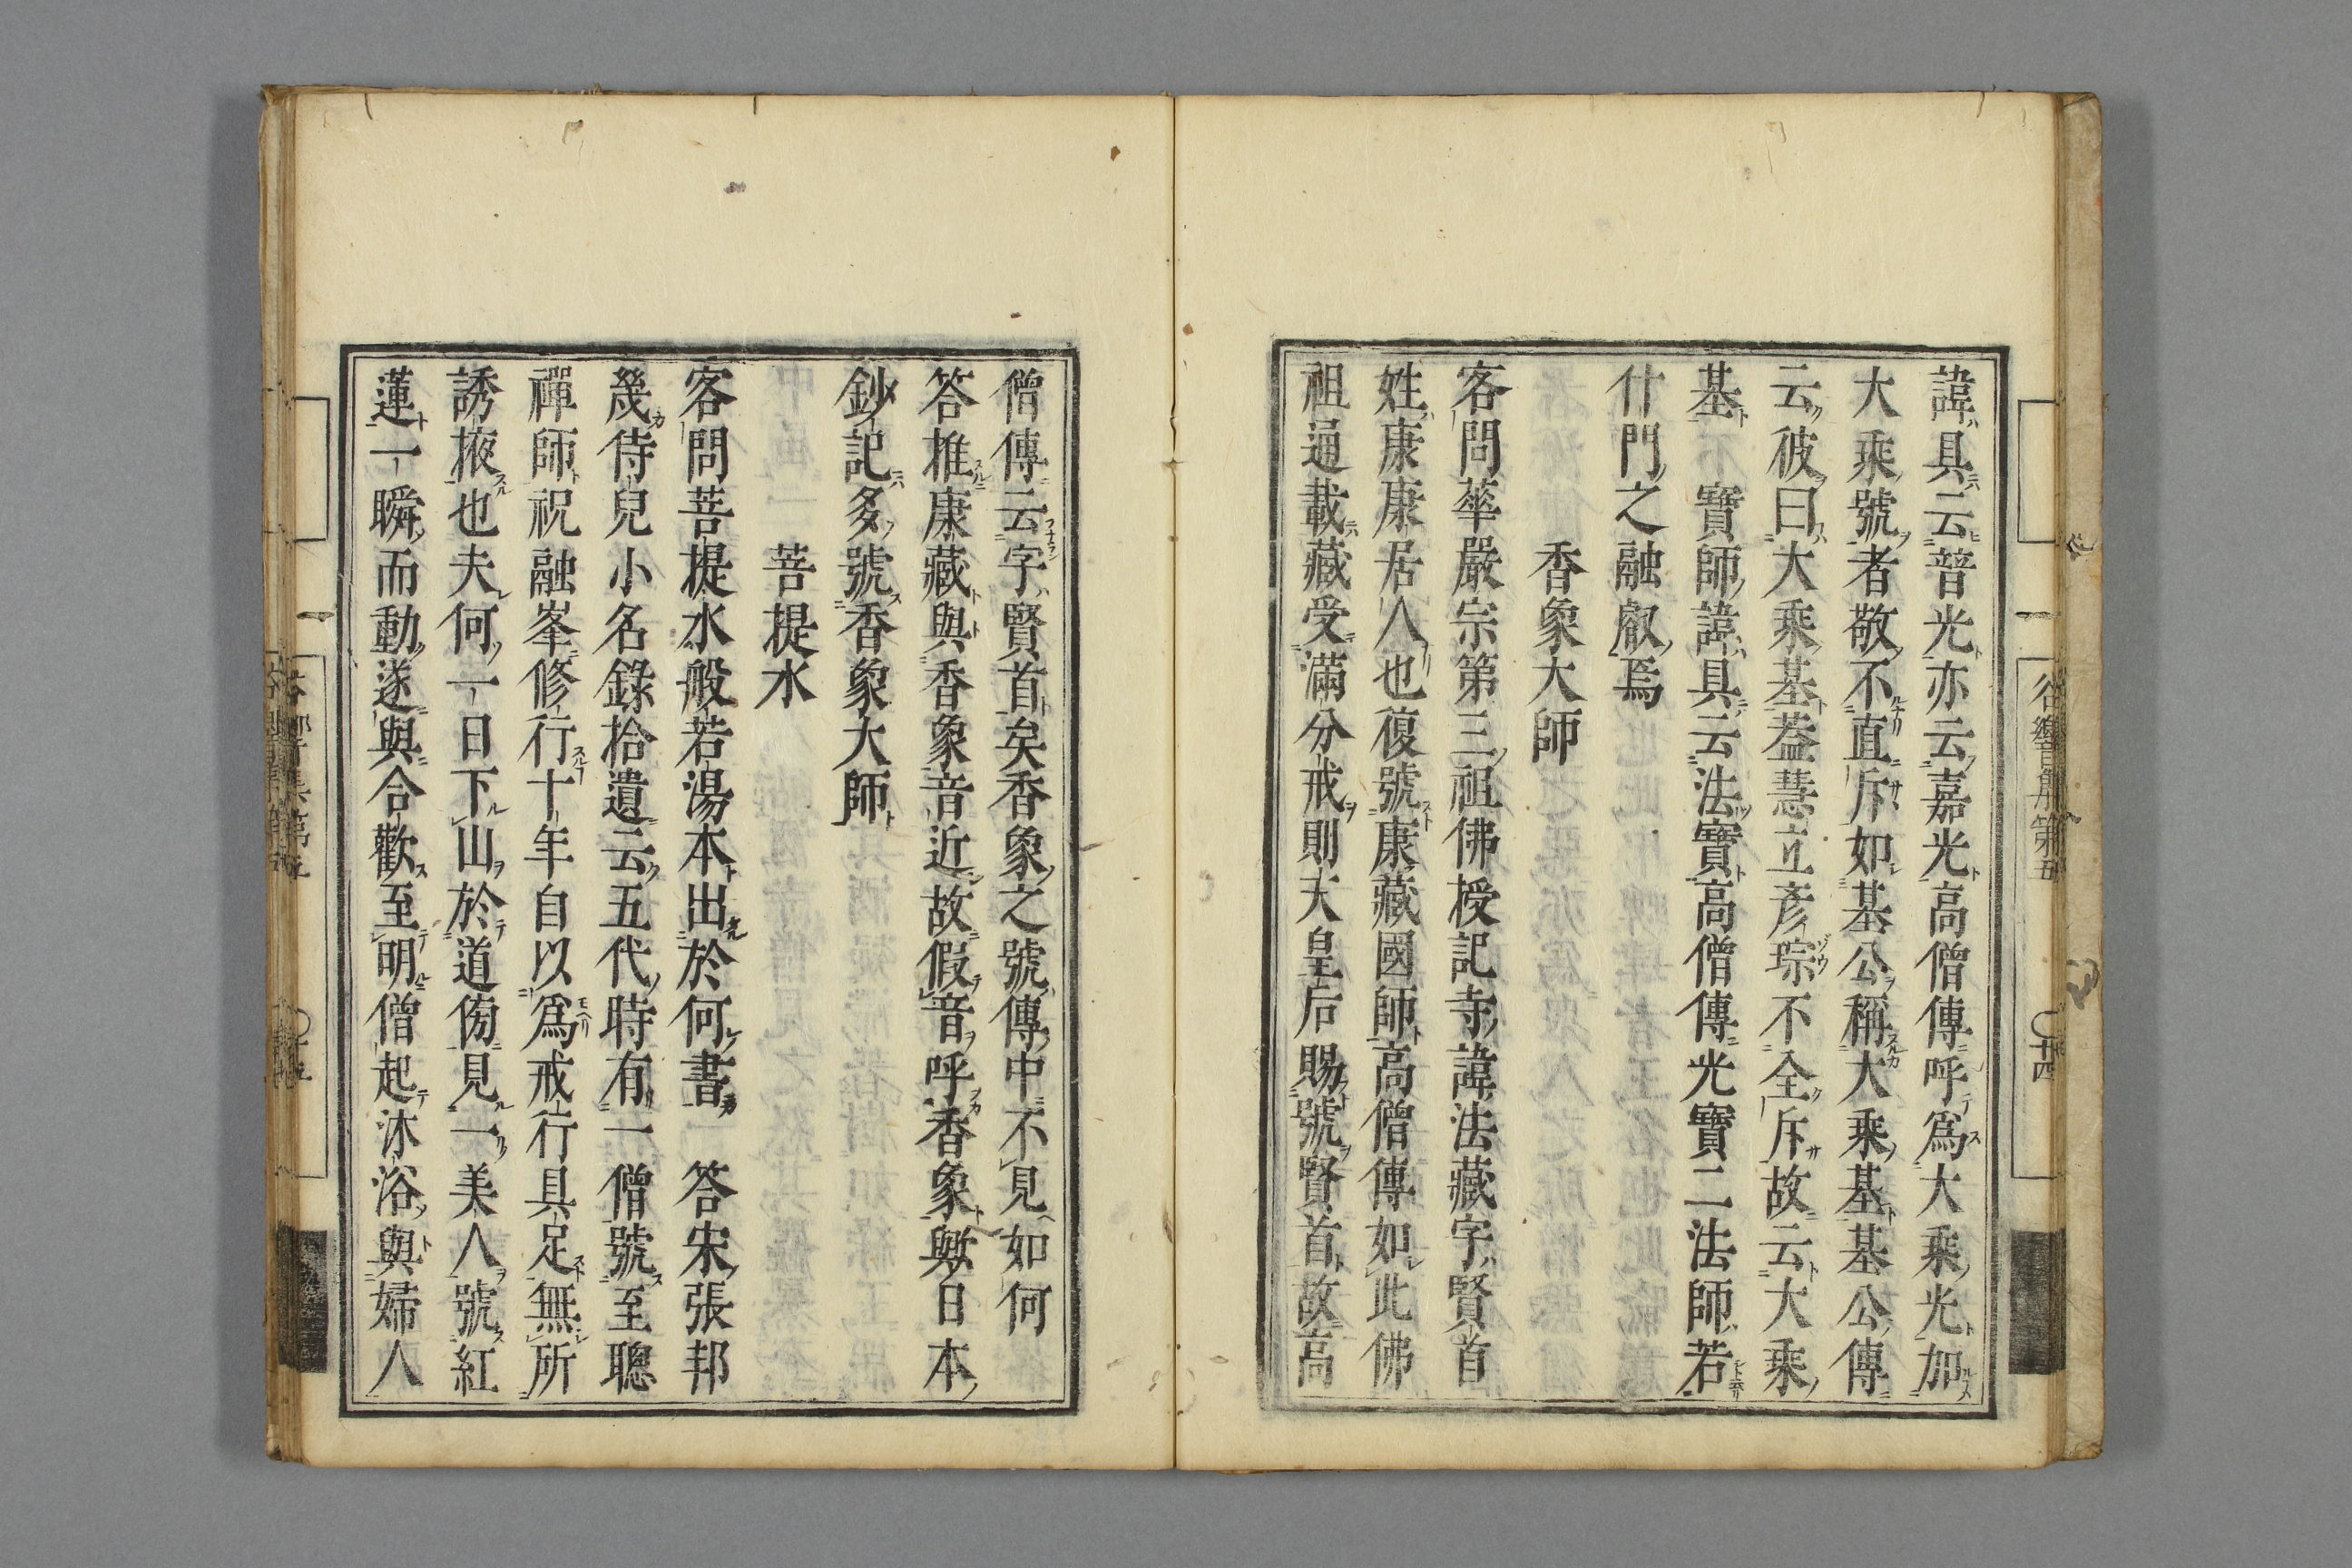 諱具云普光亦云嘉光高僧傳呼爲大乘光加
大乘號者敬不直斥如基公稱大乘基基公傳
云彼曰大乘基葢慧立彥琮不全斥故云大乘
基　寶師諱具云法寶高僧傳光寶二法師若
什門之融叡焉
香象大師
客問華嚴宗第三祖佛授記寺諱法藏字賢首
姓康康居人也復號康藏國師高僧傳如此佛
祖通載藏受滿分戒則天皇后賜號賢首故高
僧傳云字賢首矣香象之號傳中不見如何
答推康藏與香象音近故假音呼香象歟日本
鈔記多號香象大師
菩提水
客問菩提水般若湯本出於何書　答宋張邦
幾侍兒小名錄拾遺云五代時有一僧號至聰
禪師祝融峯修行十年自以爲戒行具足無所
誘掖也夫何一日下山於道傍見一美人號紅
蓮一瞬而動遂與合歡至明僧起沐浴與婦人
谷響集第五
〇十四